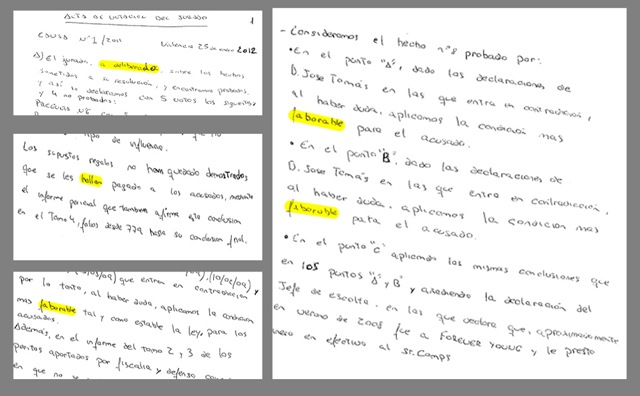 ACTA DE VOTACION DEL JURADO
1
CAUSA Nº 1/2011 Valencia 25 de enero 2012
A) El jurado, a deliberado, sobre los hechos
sometidos a su resolución, y encontramos probados,
y así lo declaramos con 5 votos los siguientes
y 4 no probados:
tipo de influencia.
Los supuestos regalos no han quedado demostrados
que se les hallan pagado a los acusados, mediante
el informe pericial que también afirma esta conclusion
en el Tomo 4, folios desde 779 hasta su conclusion final.
que entren en contradiccion y
por lo tanto, al haber duda, aplicamos la condicion
mas faborable tal y como estable la ley, para los
acusados.
Además, en el informe del tomo 2 y 3 de los
peritos aportados por fiscalia y defensa
en que no se
- Consideramos el hecho nº8 probado por:
• En el punto "A", dado las declaraciones de
D. Jose Tomás en las que entra en contradiccion,
al haber duda, aplicamos la condicion mas
faborable para el acusado.
• En el punto "B", dado las declaraciones de
D. Jose Tomás en las que entra en contradiccion,
al haber duda, aplicamos la condicion mas
faborable para el acusado.
• En el punto "C" aplicamos las mismas conclusiones que
en los puntos "A" y "B" y añadiendo la declaración del
Jefe de escolta, en las que declara que, aproximadamente
en verano de 2005 fue a FOREVER YOUNG y le presto
dinero en efectivo al Sr. Camps